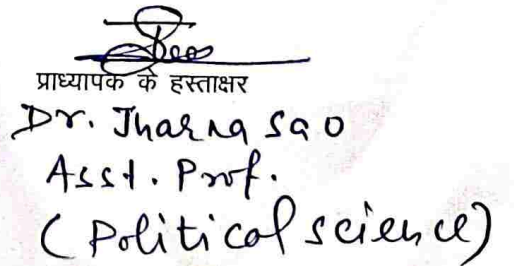 प्राध्यापक के हस्ताक्षर
Dr. Jharna Sao
Asst. Prof.
(Political science)